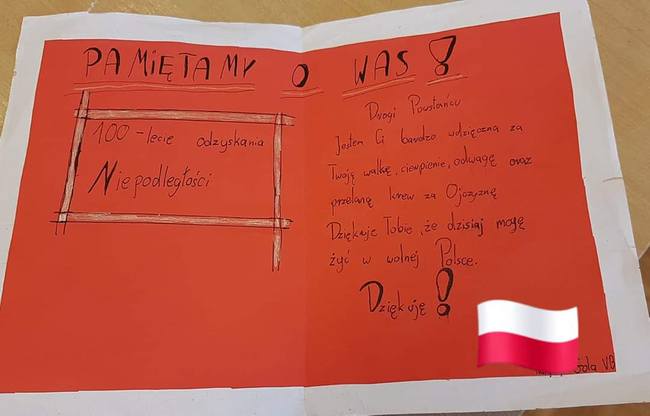 PAMIĘTAMY O WAS!
100-lecie odzyskania
Niepodległości
Drogi Powstańcu
Jestem Ci bardzo wdzięczna za
Twoją walkę, cierpienie, odwagę oraz
przelaną krew za Ojczyznę
Dziękuję Tobie, że dzisiaj mogę
żyć w wolnej Polsce.
Dziękuję!
VB